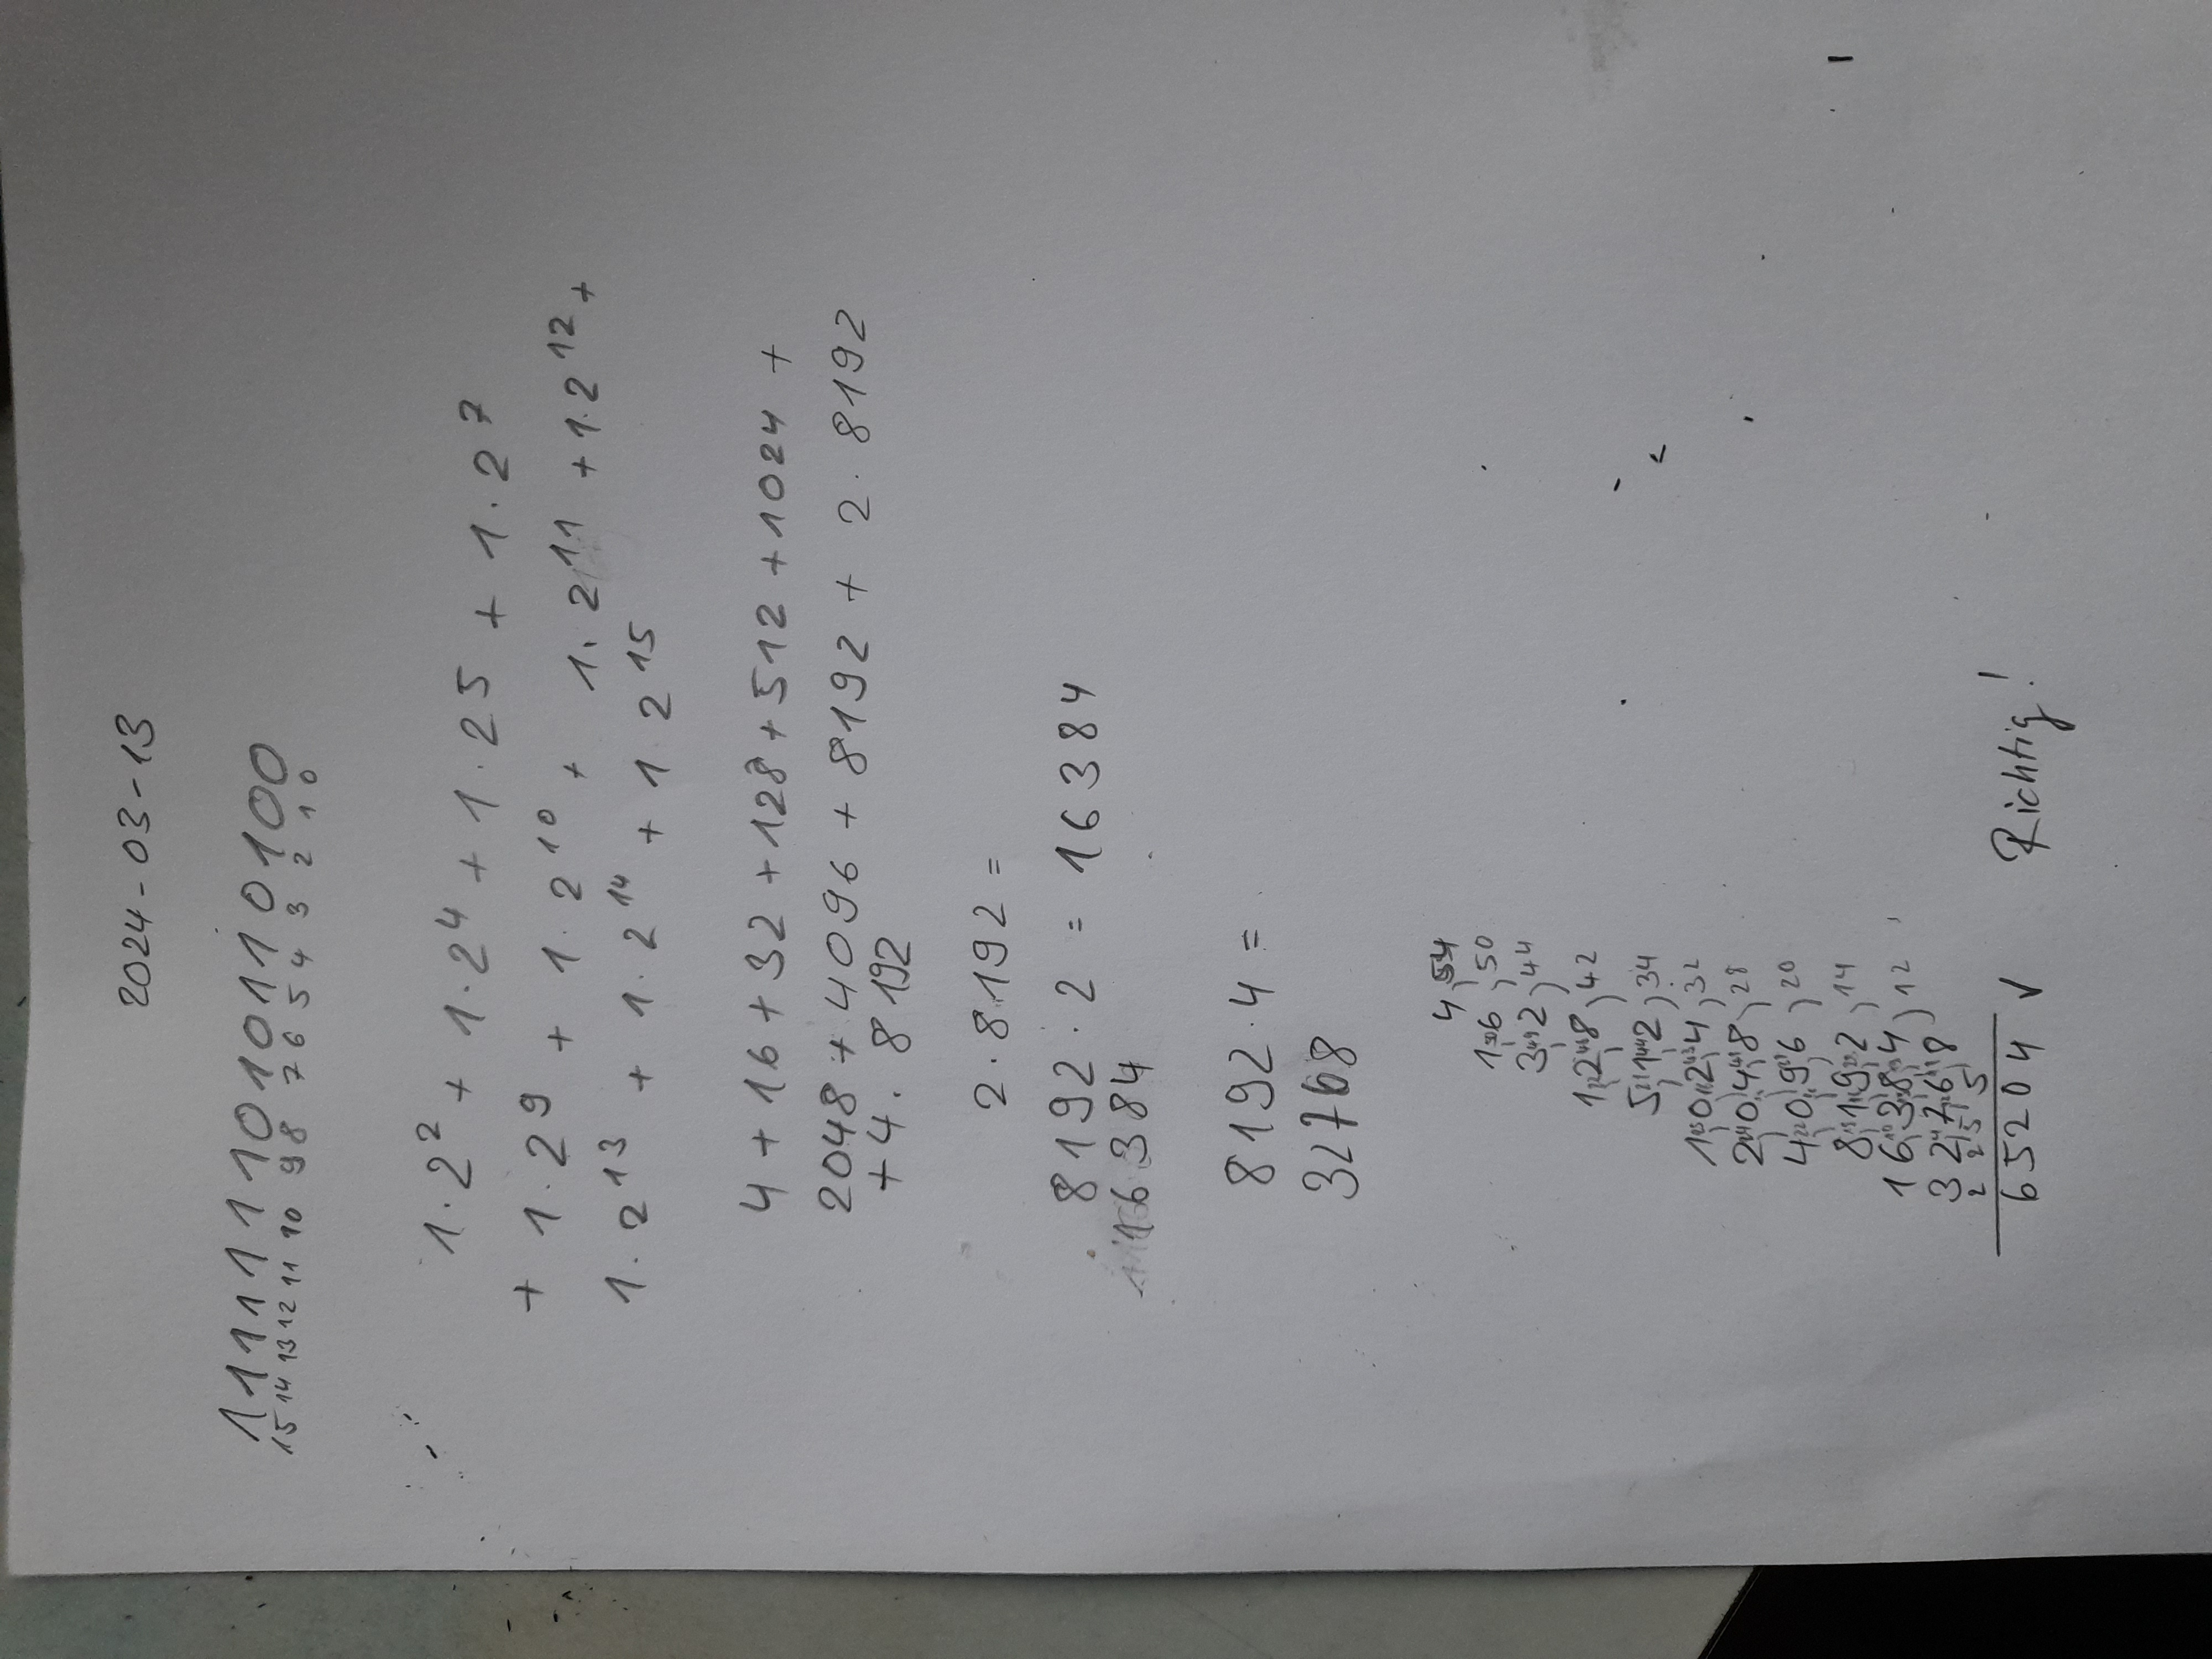 2024-03-13
1111111010110100
15 14 13 12 11 10 9 8 7 6 5 4 3 2 1 0
1·2² + 1·2⁴ + 1·25 + 1·2⁷
+ 1·2⁹ + 1·2¹⁰ + 1·2¹¹ + 1·2¹² +
1·2¹³ + 1·2¹⁴ + 1·2¹⁵
4 + 16 + 32 + 128 + 512 + 1024 +
2048 + 4096 + 8192 + 2·8192
+ 4·8192
2·8192 =
8192·2 = 16384
16384
8192·4 =
32768
4 ) 54
16 ) 50
32 ) 44
128 ) 42
512 ) 34
1024 ) 32
2048 ) 28
4096 ) 20
8192 ) 14
16384 ) 12
32768
2 2 5 5
65204 √ Richtig!